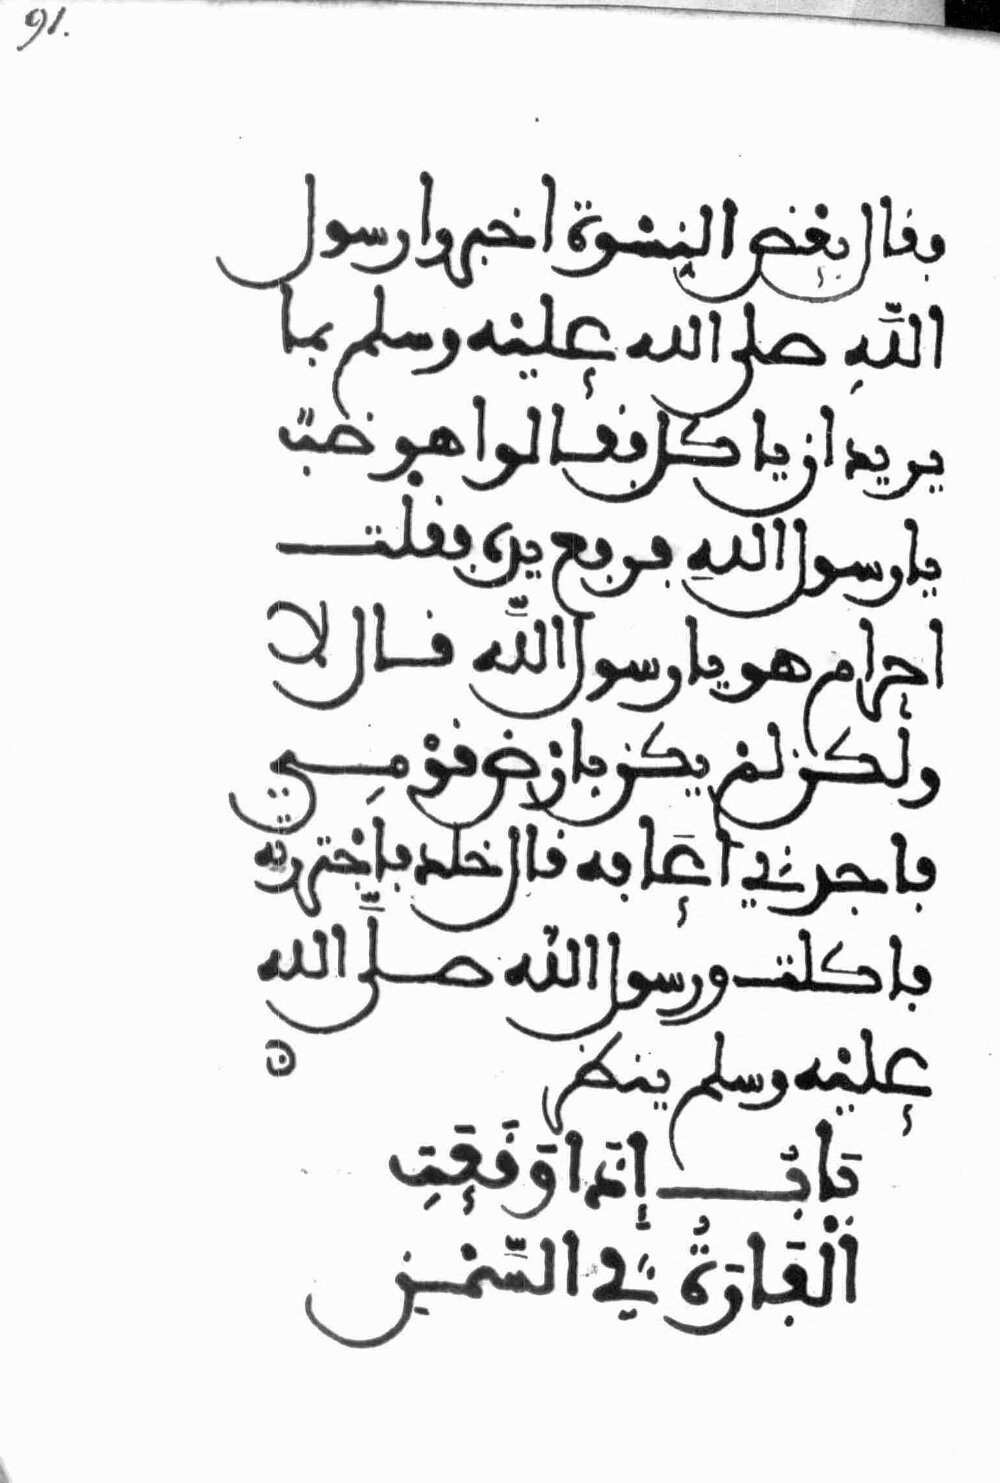 91.
فقال بعض النسوة اخبروا رسول
اللهِ صلى الله عليه وسلم بما
يريد ان ياكل فقالوا هو ضبٌّ
يا رسول اللهِ فرفع يده فقلت
احرام هو يا رسول اللَّه قال لا
ولكن لمْ يكن بارْض قوْمِي
فاجدني أعافه قال خلد فاجْتررته
فاكلت ورسول الله صلَّى الله
عليْه وسلم ينظر ن
بَابٌ إِذَا وَقَعَتِ
الْفَارَةُ فِي السَّمْنِ